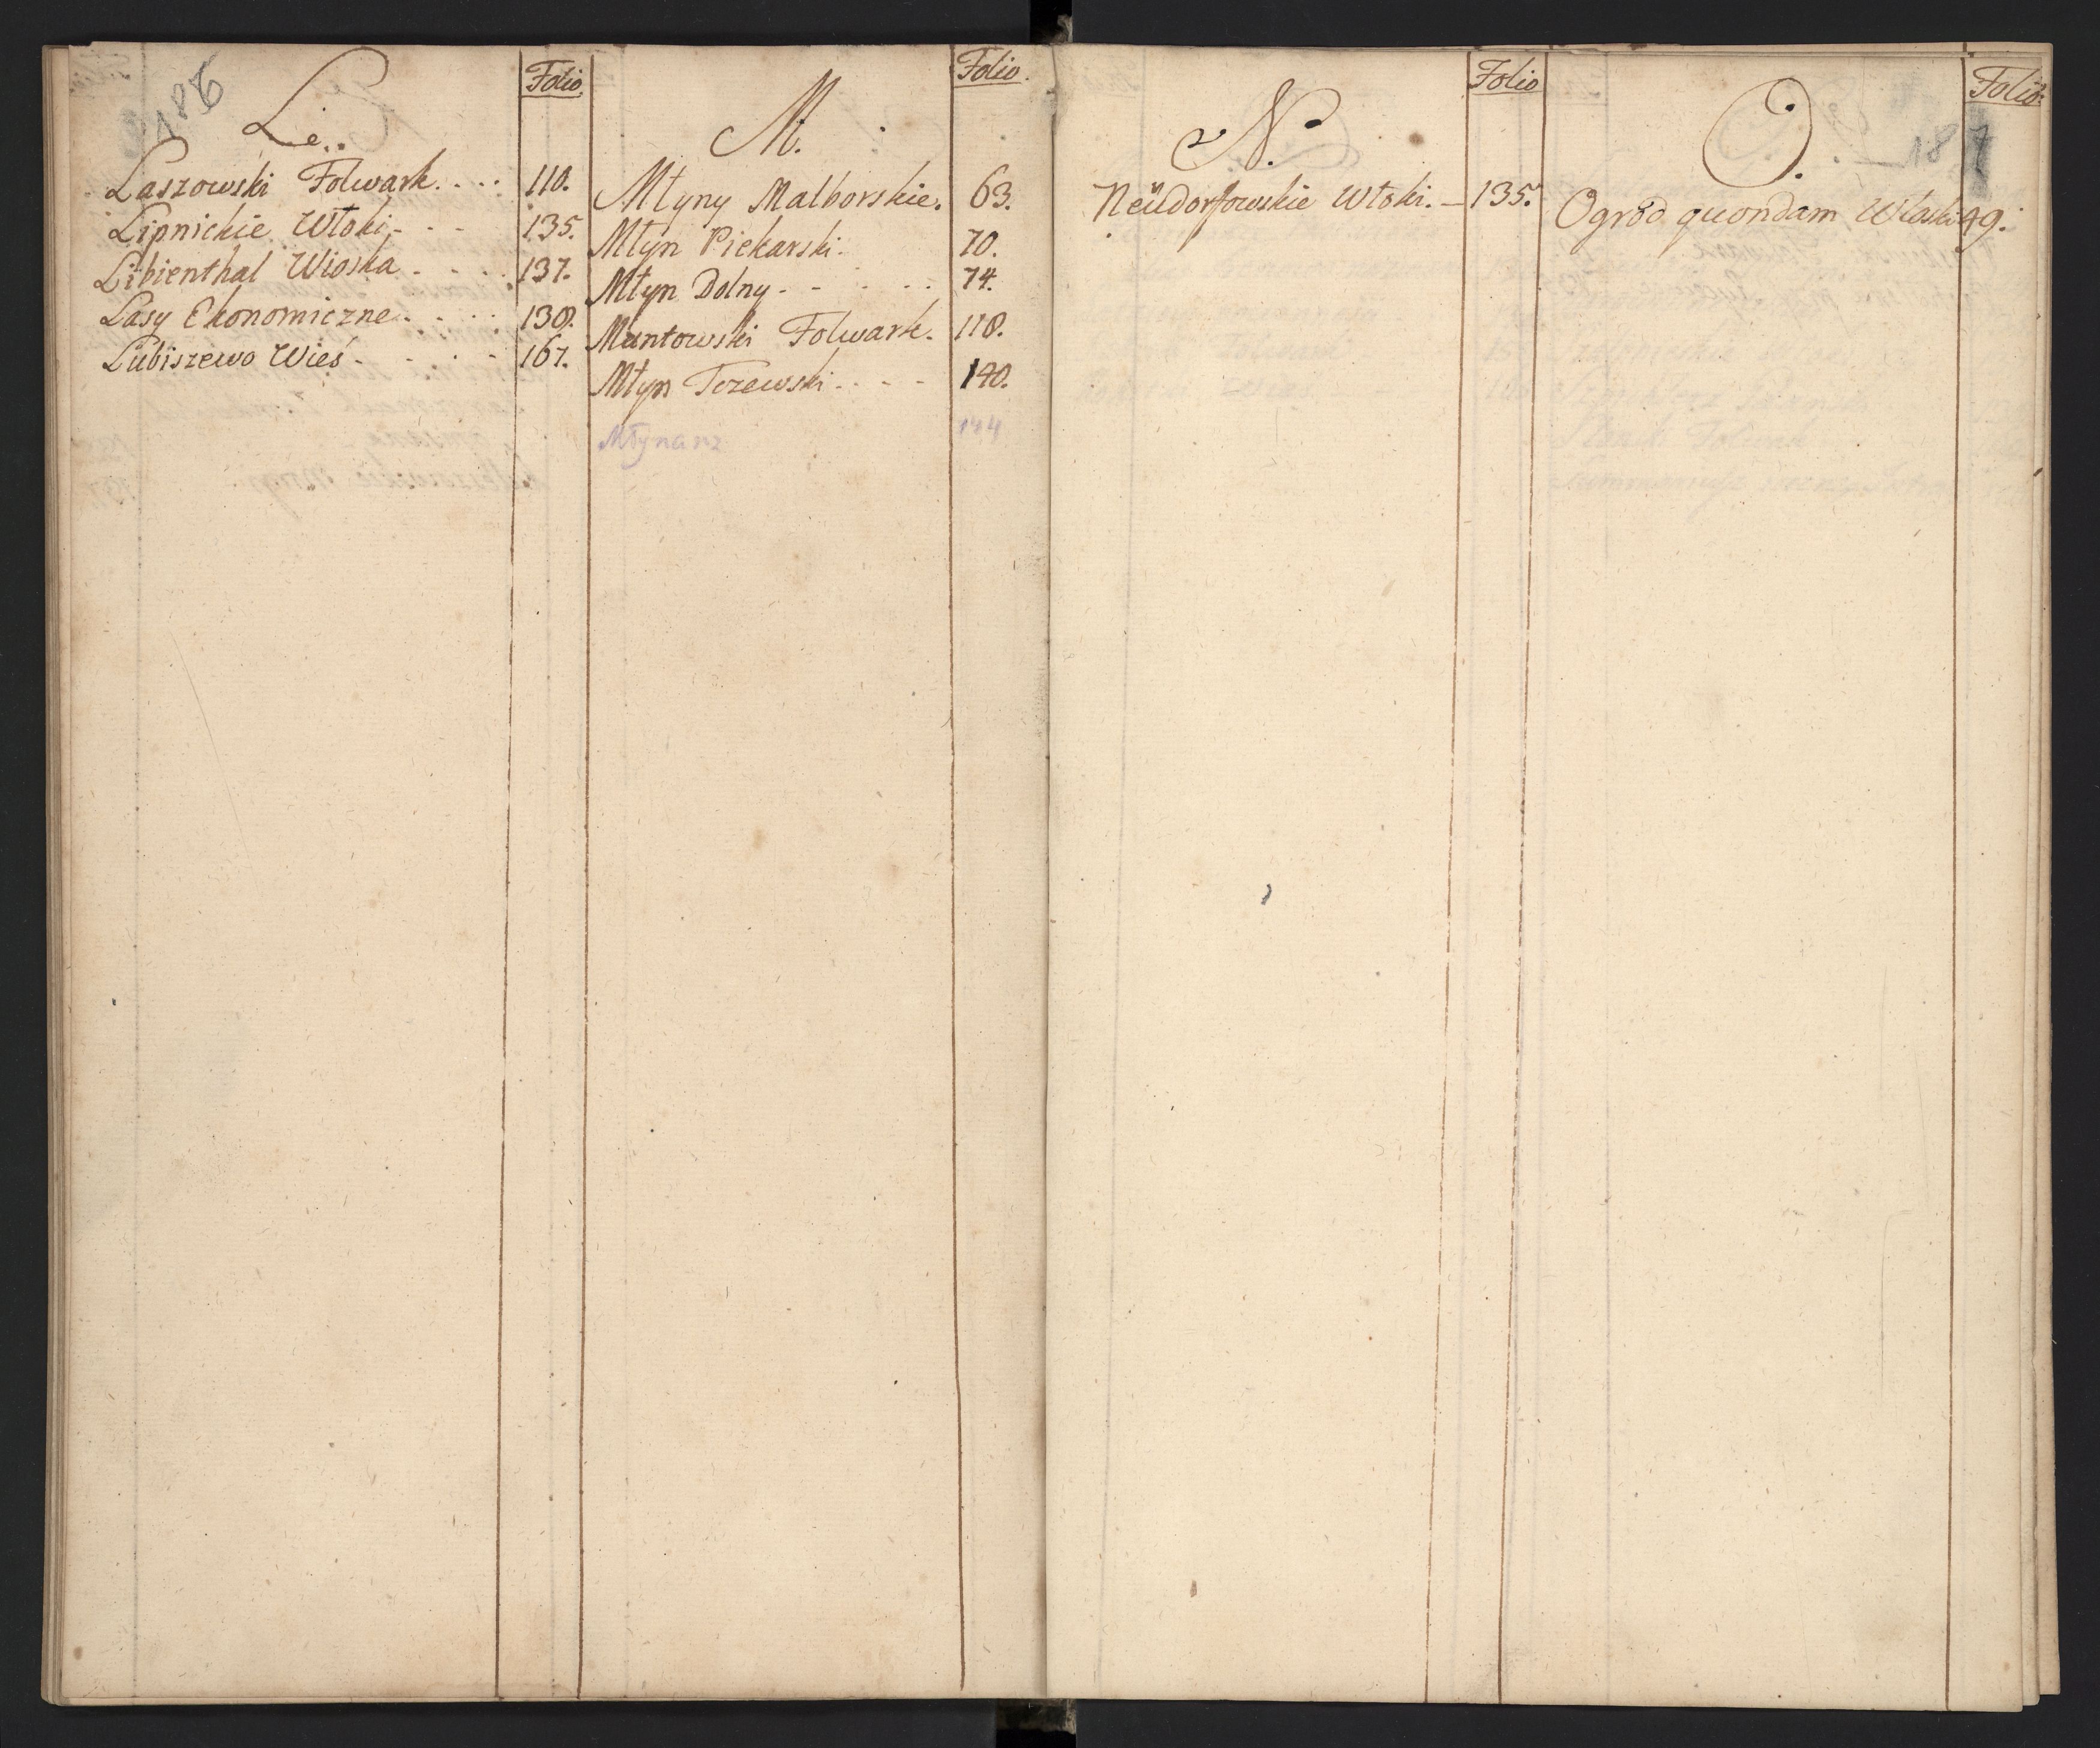 186
L.
Folio.
Laszowski Folwark. 110.
Lipnickie Włoki 135.
Libienthal Wioska 137.
Lasy Ekonomiczne 138.
Lubiszewo Wieś 167.
M.
Folio.
Młyny Malborskie. 63.
Młyn Piekarski. 70.
Młyn Dolny 74.
Mantowski Folwark. 118.
Młyn Tczewski 140.
Młynarz 144
N.
Folio
Neüdorfowskie Włoki. 135.
O.
Folio.
187
Ogród quondam 49.